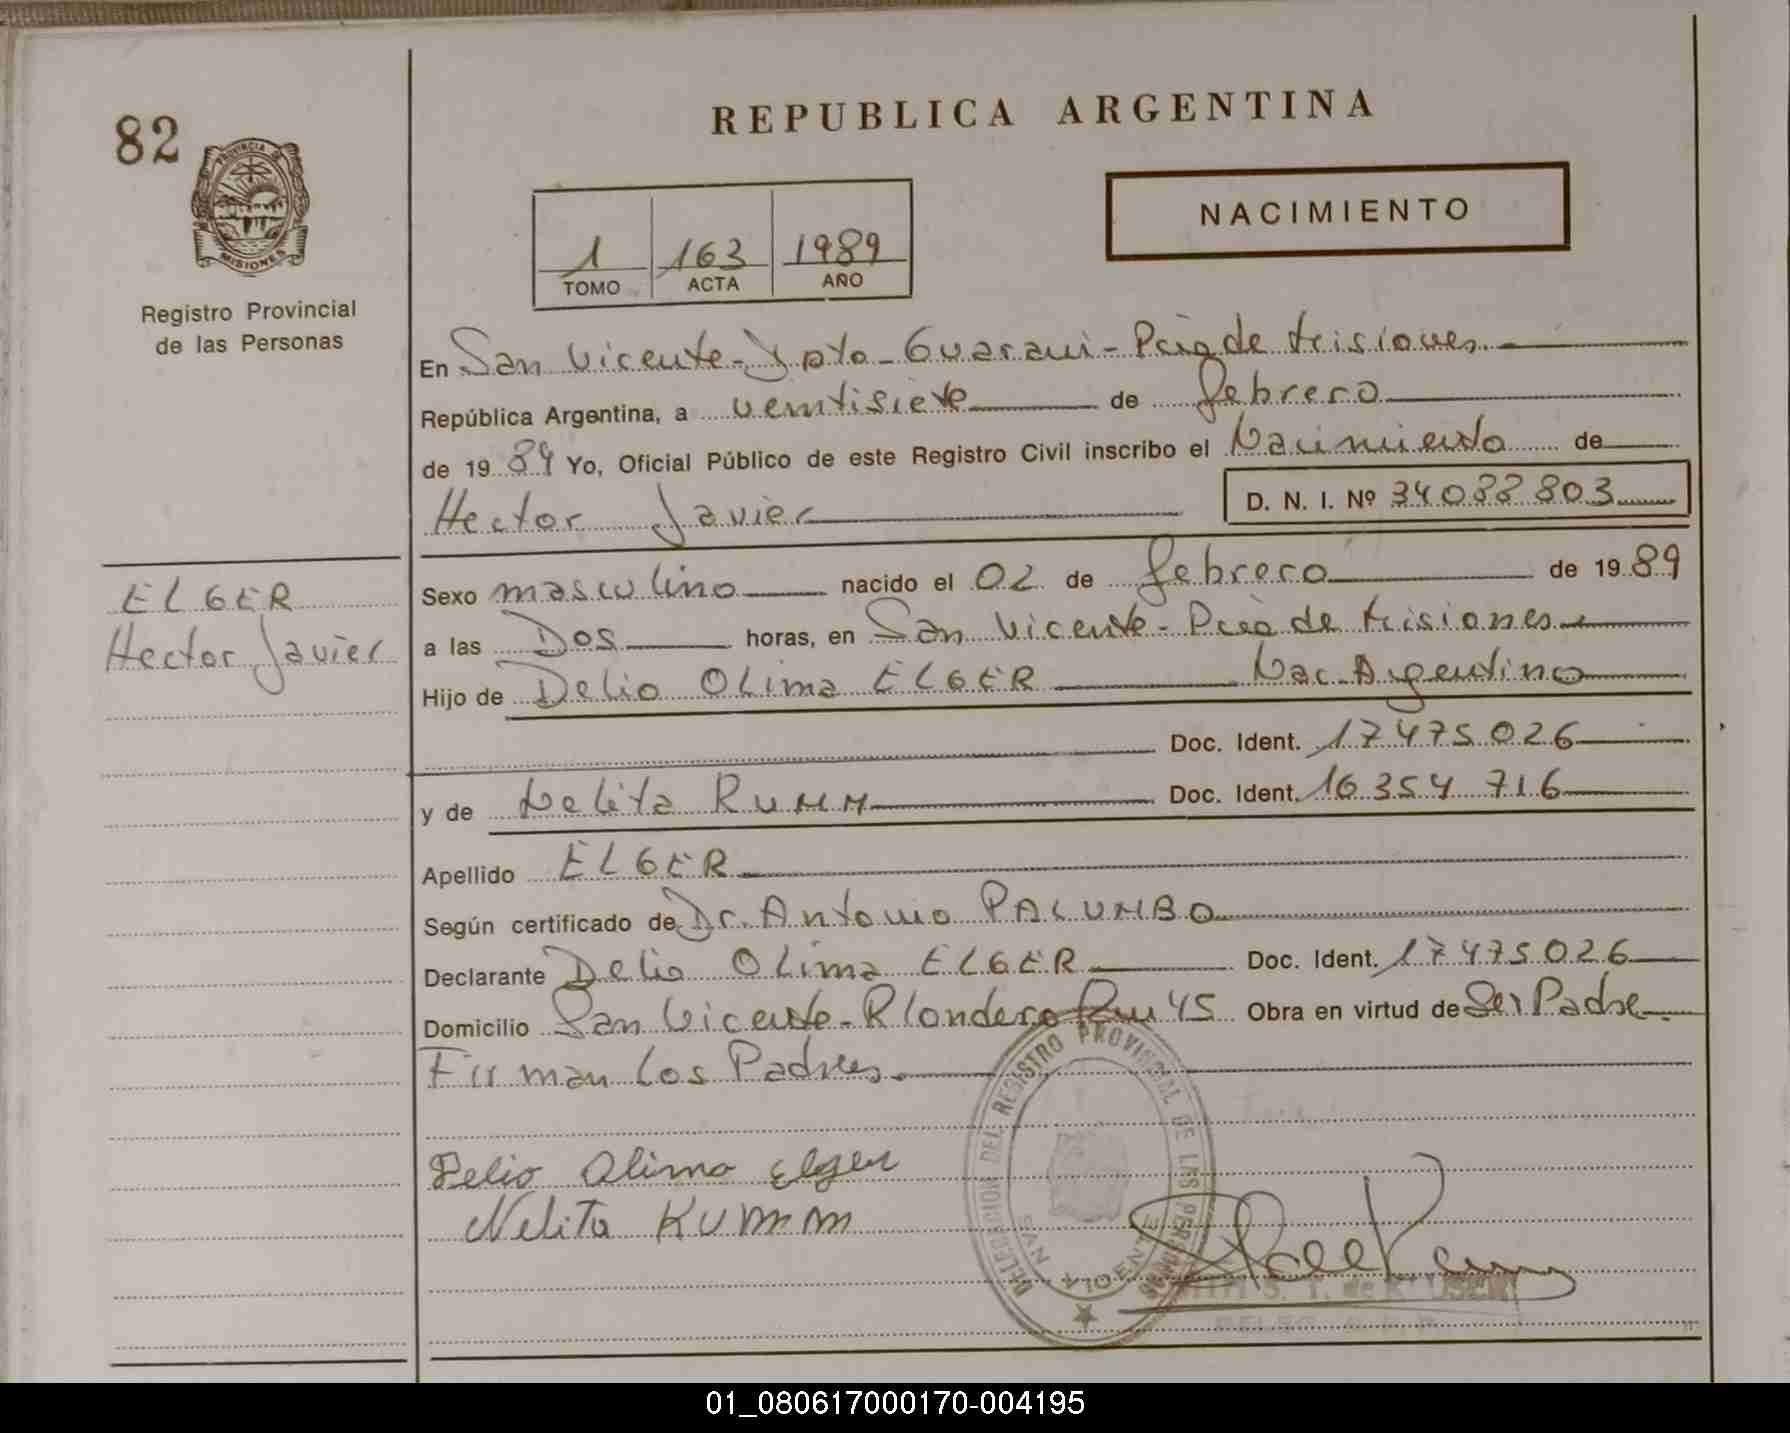 82
PROVINCIA DE
MISIONES
Registro Provincial
de las Personas
ELGER
Hector Javier
REPUBLICA ARGENTINA
NACIMIENTO
1 163 1989
TOMO ACTA AÑO
En San Vicente - Dpto - Guarani - Pcia de Misiones.
República Argentina, a veintisiete de febrero
de 1989 Yo, Oficial Público de este Registro Civil inscribo el Nacimiento de
Hector Javier D. N. I. Nº 34088803
Sexo masculino nacido el 02 de febrero de 1989
a las Dos horas, en San Vicente - Pcia de Misiones
Hijo de Delio OLima ELGER Nac. Argentino
Doc. Ident. 17475026
y de Nelita KUMM Doc. Ident. 16354716
Apellido ELGER
Según certificado de Dr. Antonio PALUMBO
Declarante Delio OLima ELGER Doc. Ident. 17475026
Domicilio San Vicente - Km 45 Obra en virtud de Ser Padre
Firman los Padres.
Delio Olima Elger
Nelita KUMM
DELEGACION DEL REGISTRO PROVINCIAL DE LAS PERSONAS
SAN VICENTE
01_080617000170-004195